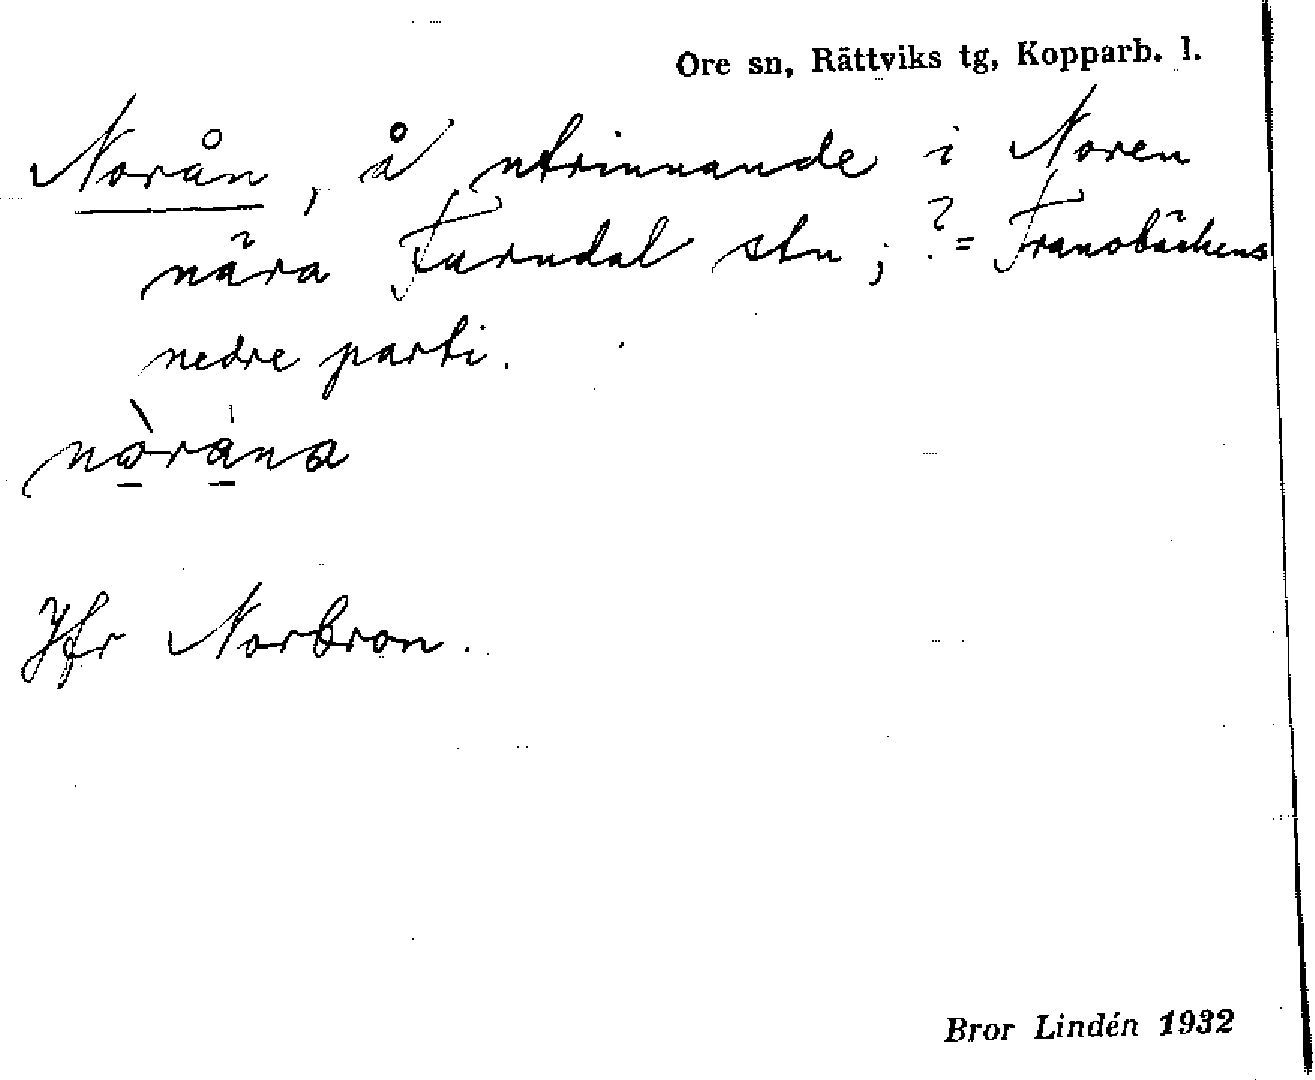 Ore sn, Rättviks tg, Kopparb. l.
Norån, å utrinnande i Noren
nära Furudal stn; ?= Franobäckens
nedre parti.
nòrána
Jfr Norbron.
Bror Lindén 1932